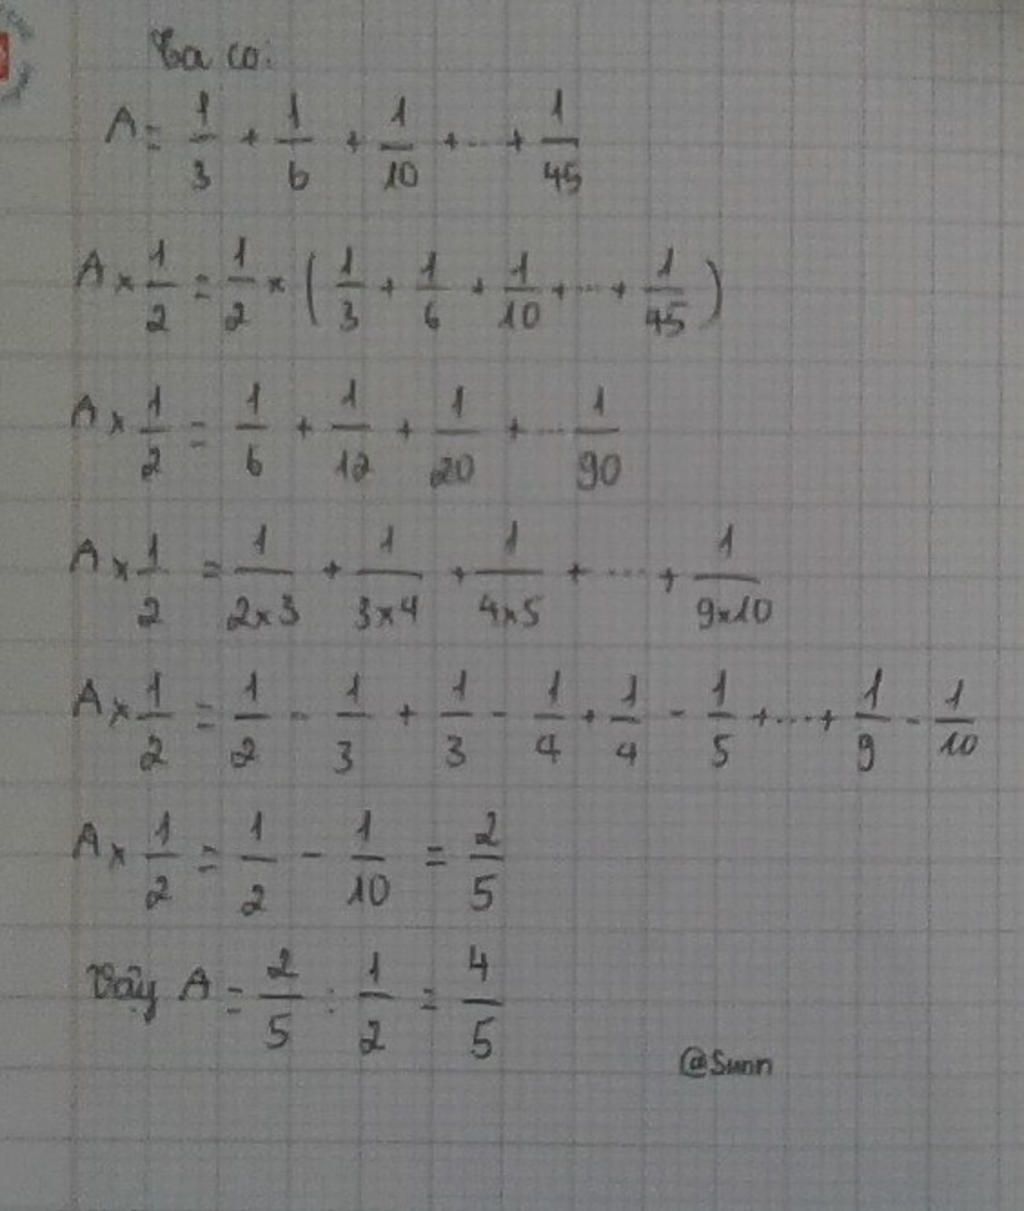 Ta có:
A = 1/3 + 1/6 + 1/10 + ... + 1/45
A × 1/2 = 1/2 × ( 1/3 + 1/6 + 1/10 + ... + 1/45 )
A × 1/2 = 1/6 + 1/12 + 1/20 + ... 1/90
A × 1/2 = 1/2×3 + 1/3×4 + 1/4×5 + ... + 1/9×10
A × 1/2 = 1/2 - 1/3 + 1/3 - 1/4 + 1/4 - 1/5 + ... + 1/9 - 1/10
A × 1/2 = 1/2 - 1/10 = 2/5
Vậy A = 2/5 : 1/2 = 4/5
@Sunn